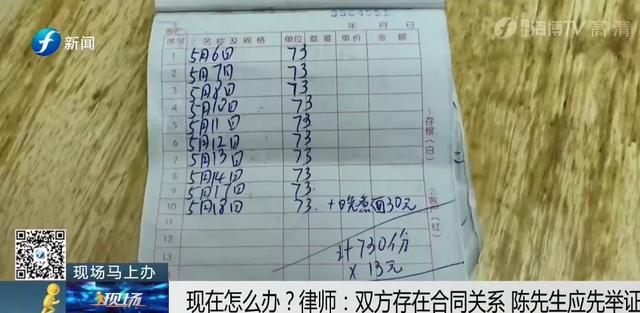 新闻
海博TV 高清
3564551
年 月 日
客户
序号 名称及规格 单位 数量 单价 金额
1 5月6日 73
2 5月7日 73
3 5月8日 73
4 5月10日 73
5 5月11日 73
6 5月12日 73
7 5月13日 73
8 5月14日 73
9 5月17日 73.
10 5月18日 73. +晚煮面30元
11
12 计730份
13 ×13元
1存根(白)
2客户(红)
现场马上办
现场
现在怎么办？律师：双方存在合同关系 陈先生应先举证